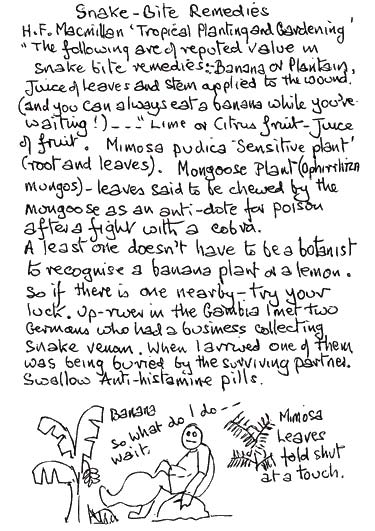 Snake-Bite Remedies
H.F. Macmillan 'Tropical Planting and Gardening'
"The following are of reputed value in
snake bite remedies:- Banana or Plantain,
Juice of leaves and stem applied to the wound.
(and you can always eat a banana while you're
waiting!) - - - "Lime or Citrus fruit - Juice
of fruit. Mimosa pudica 'Sensitive plant'
(root and leaves). Mongoose Plant (Ophirrhiza
mungos) - leaves said to be chewed by the
mongoose as an anti-dote for poison
after a fight with a cobra.
A least one doesn't have to be a botanist
to recognise a banana plant or a lemon.
So if there is one nearby - try your
luck. Up-river in the Gambia I met two
Germans who had a business collecting
snake venom. When I arrived one of them
was being buried by the surviving partner.
Swallow Anti-histamine pills.
Banana
So what do I do - -
wait.
Mimosa
Leaves
fold shut
at a touch.